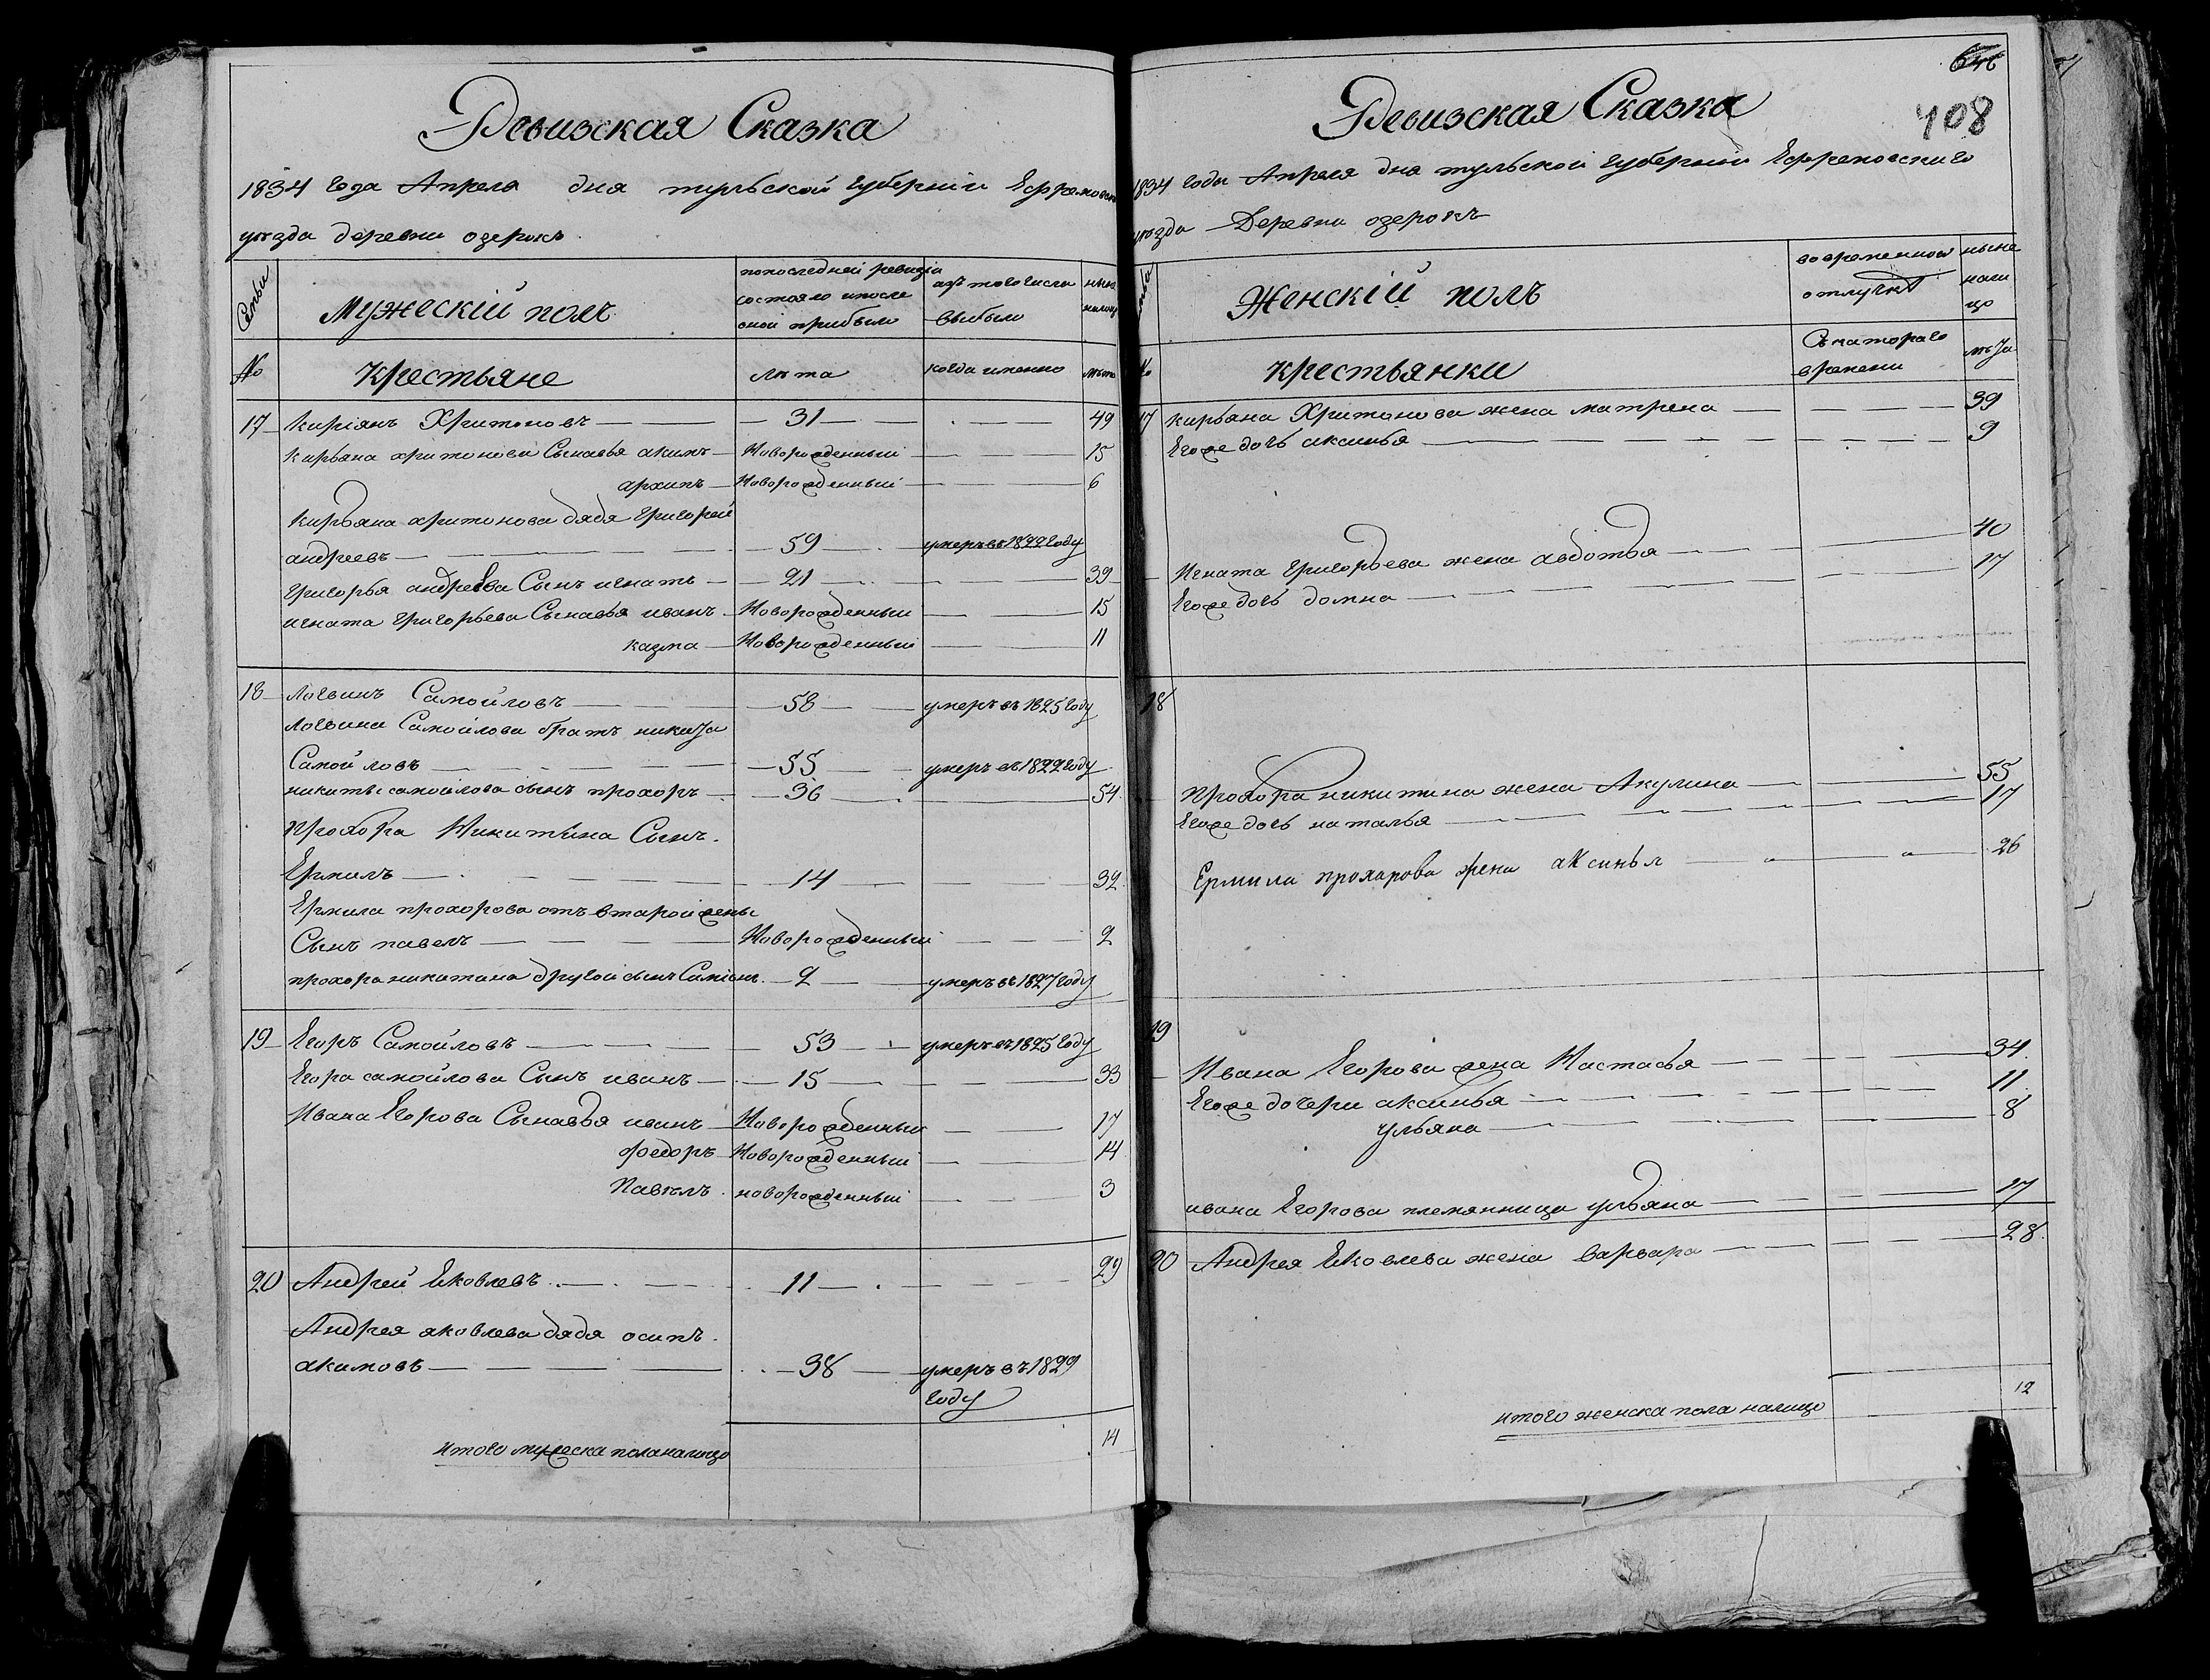 Ревизская Сказка
1834 года Апреля дня тульской губернiи Ефремовск
уѣзда деревни озерокъ
Семьи
Мужескiй полъ
попоследней ревизiи
состояло ипосле
оной прибыло
изъ того числа
выбыло
ныне
налицо
№
Крестьяне
лѣта
когда именно
лѣта
17 Кирiянъ Хритоновъ 31 49
Кирьяна хритонова Сынавья акимъ Новорожденный 15
архипъ Новорожденный 6
Кирьяна хритонова дядя Григорей
андреевъ 59 умеръ въ 1822 году
Григорья андреева Сынъ игнатъ 21 39
игната Григорьева Сынавья иванъ Новорожденный 15
казма Новорожденный 11
18 Логвинъ Самойловъ 58 умеръ въ 1825 году
Логвина Самойлова братъ никита
Самойловъ 55 умеръ въ 1822 году
никиты самойлова сынъ прохоръ 36 54
Прохора Никитина Сынъ
Ермилъ 14 32
Ермила прохорова отъ второй жены
Сынъ павелъ Новорожденный 2
прохора никитина другой сынъ 2 умеръ въ 1827 году
19 Егоръ Самойловъ 53 умеръ въ 1825 году
Егора самойлова Сынъ иванъ 15 33
Ивана Егорова Сынавья иванъ Новорожденный 17
федоръ Новорожденный 14
Павелъ новорожденный 3
20 Андрей Яковлевъ 11 29
Андрея яковлева дядя осипъ
акимовъ 38 умеръ въ 1829
году
итого мужеска пола налицо 14
646
408
Ревизская Сказка
1834 года Апреля дня тульской губернiи Ефремовскаго
уѣзда Деревни озерокъ
Женскiй полъ
во временной
отлучке
ныне
нали
цо
№
крестьянки
Съ катораго
времени
лѣта
17 кирьяна Хритонова жена матрена 39
Егоже дочь аксинья 9
Игната Григорьева жена авдотья 40
Егоже дочь домна 17
18
Прохора никитина жена Акулина 55
Егоже дочь наталья 17
Ермила прохарова жена аксинья 26
19
Ивана Егорова жена Настасья 34
Егоже дочери аксинья 11
ульяна 8
ивана Егорова племянница ульяна 17
20 Андрея Яковлева жена варвара 28
итого женска пола налицо 12